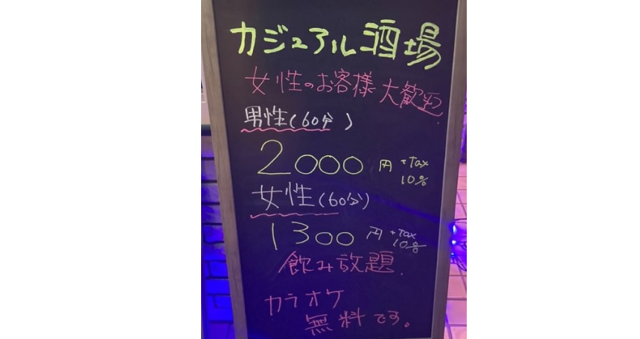 カジュアル酒場
女性のお客様大歓迎
男性(60分)
2000円+Tax
10%
女性(60分)
1300円+Tax
10%
飲み放題.
カラオケ
無料です。